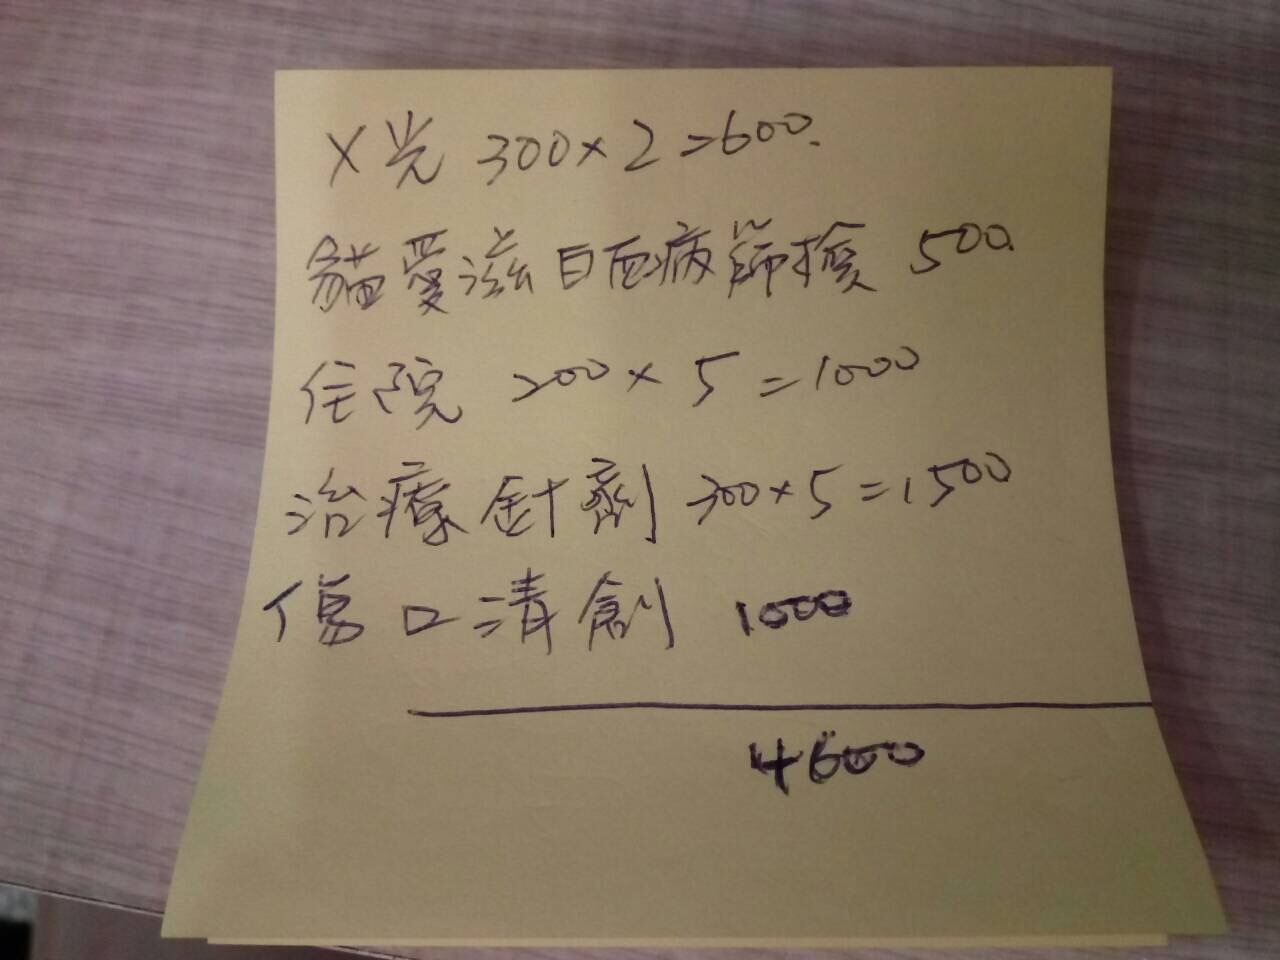 X光 300×2=600.
貓愛滋白血病篩檢 500.
住院 200×5=1000
治療針劑 300×5=1500
傷口清創 1000
4600